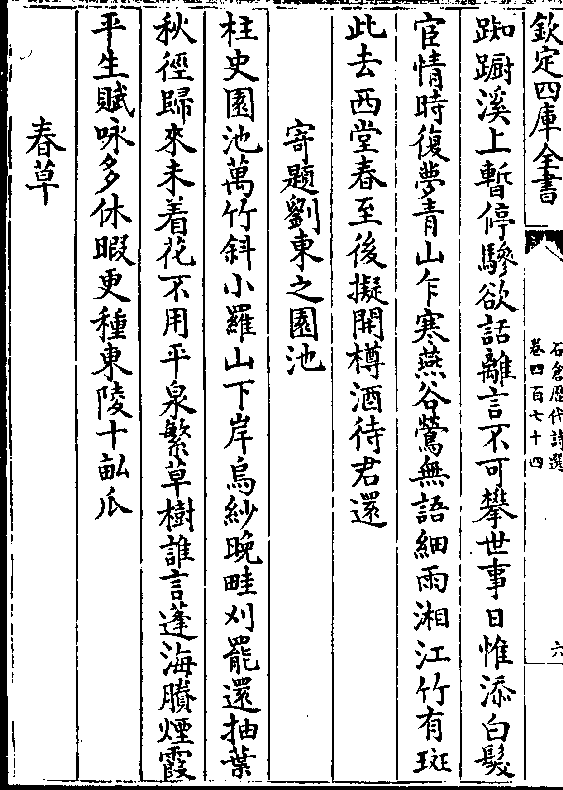 欽定四庫全書
石倉歷代詩選
卷四百七十四
六
踟蹰溪上暫停驂欲話離言不可攀世事日惟添白髮
宦情時復夢青山乍寒燕谷鶯無語細雨湘江竹有斑
此去西堂春至後擬開樽酒待君還
寄題劉東之園池
柱史園池萬竹斜小羅山下岸烏紗晚畦刈罷還抽葉
秋徑歸來未着花不用平泉繁草樹誰言蓬海賸煙霞
平生賦咏多休暇更種東陵十畝瓜
春草